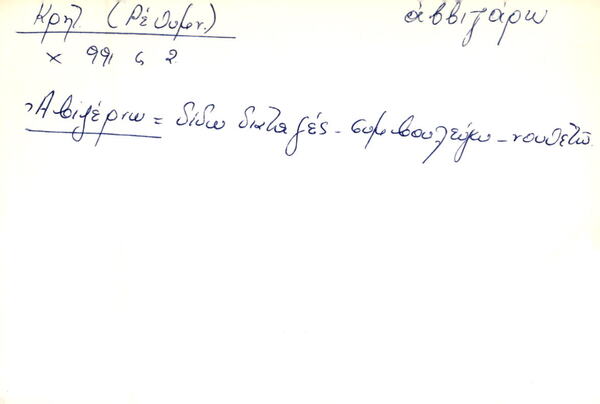 Κρητ. (Ρέθυμν.) ἀββιζάρω
× 991 ς 2
Ἀβιζέρνω = δίδω διαταγές - συμβουλεύω - νουθετῶ.